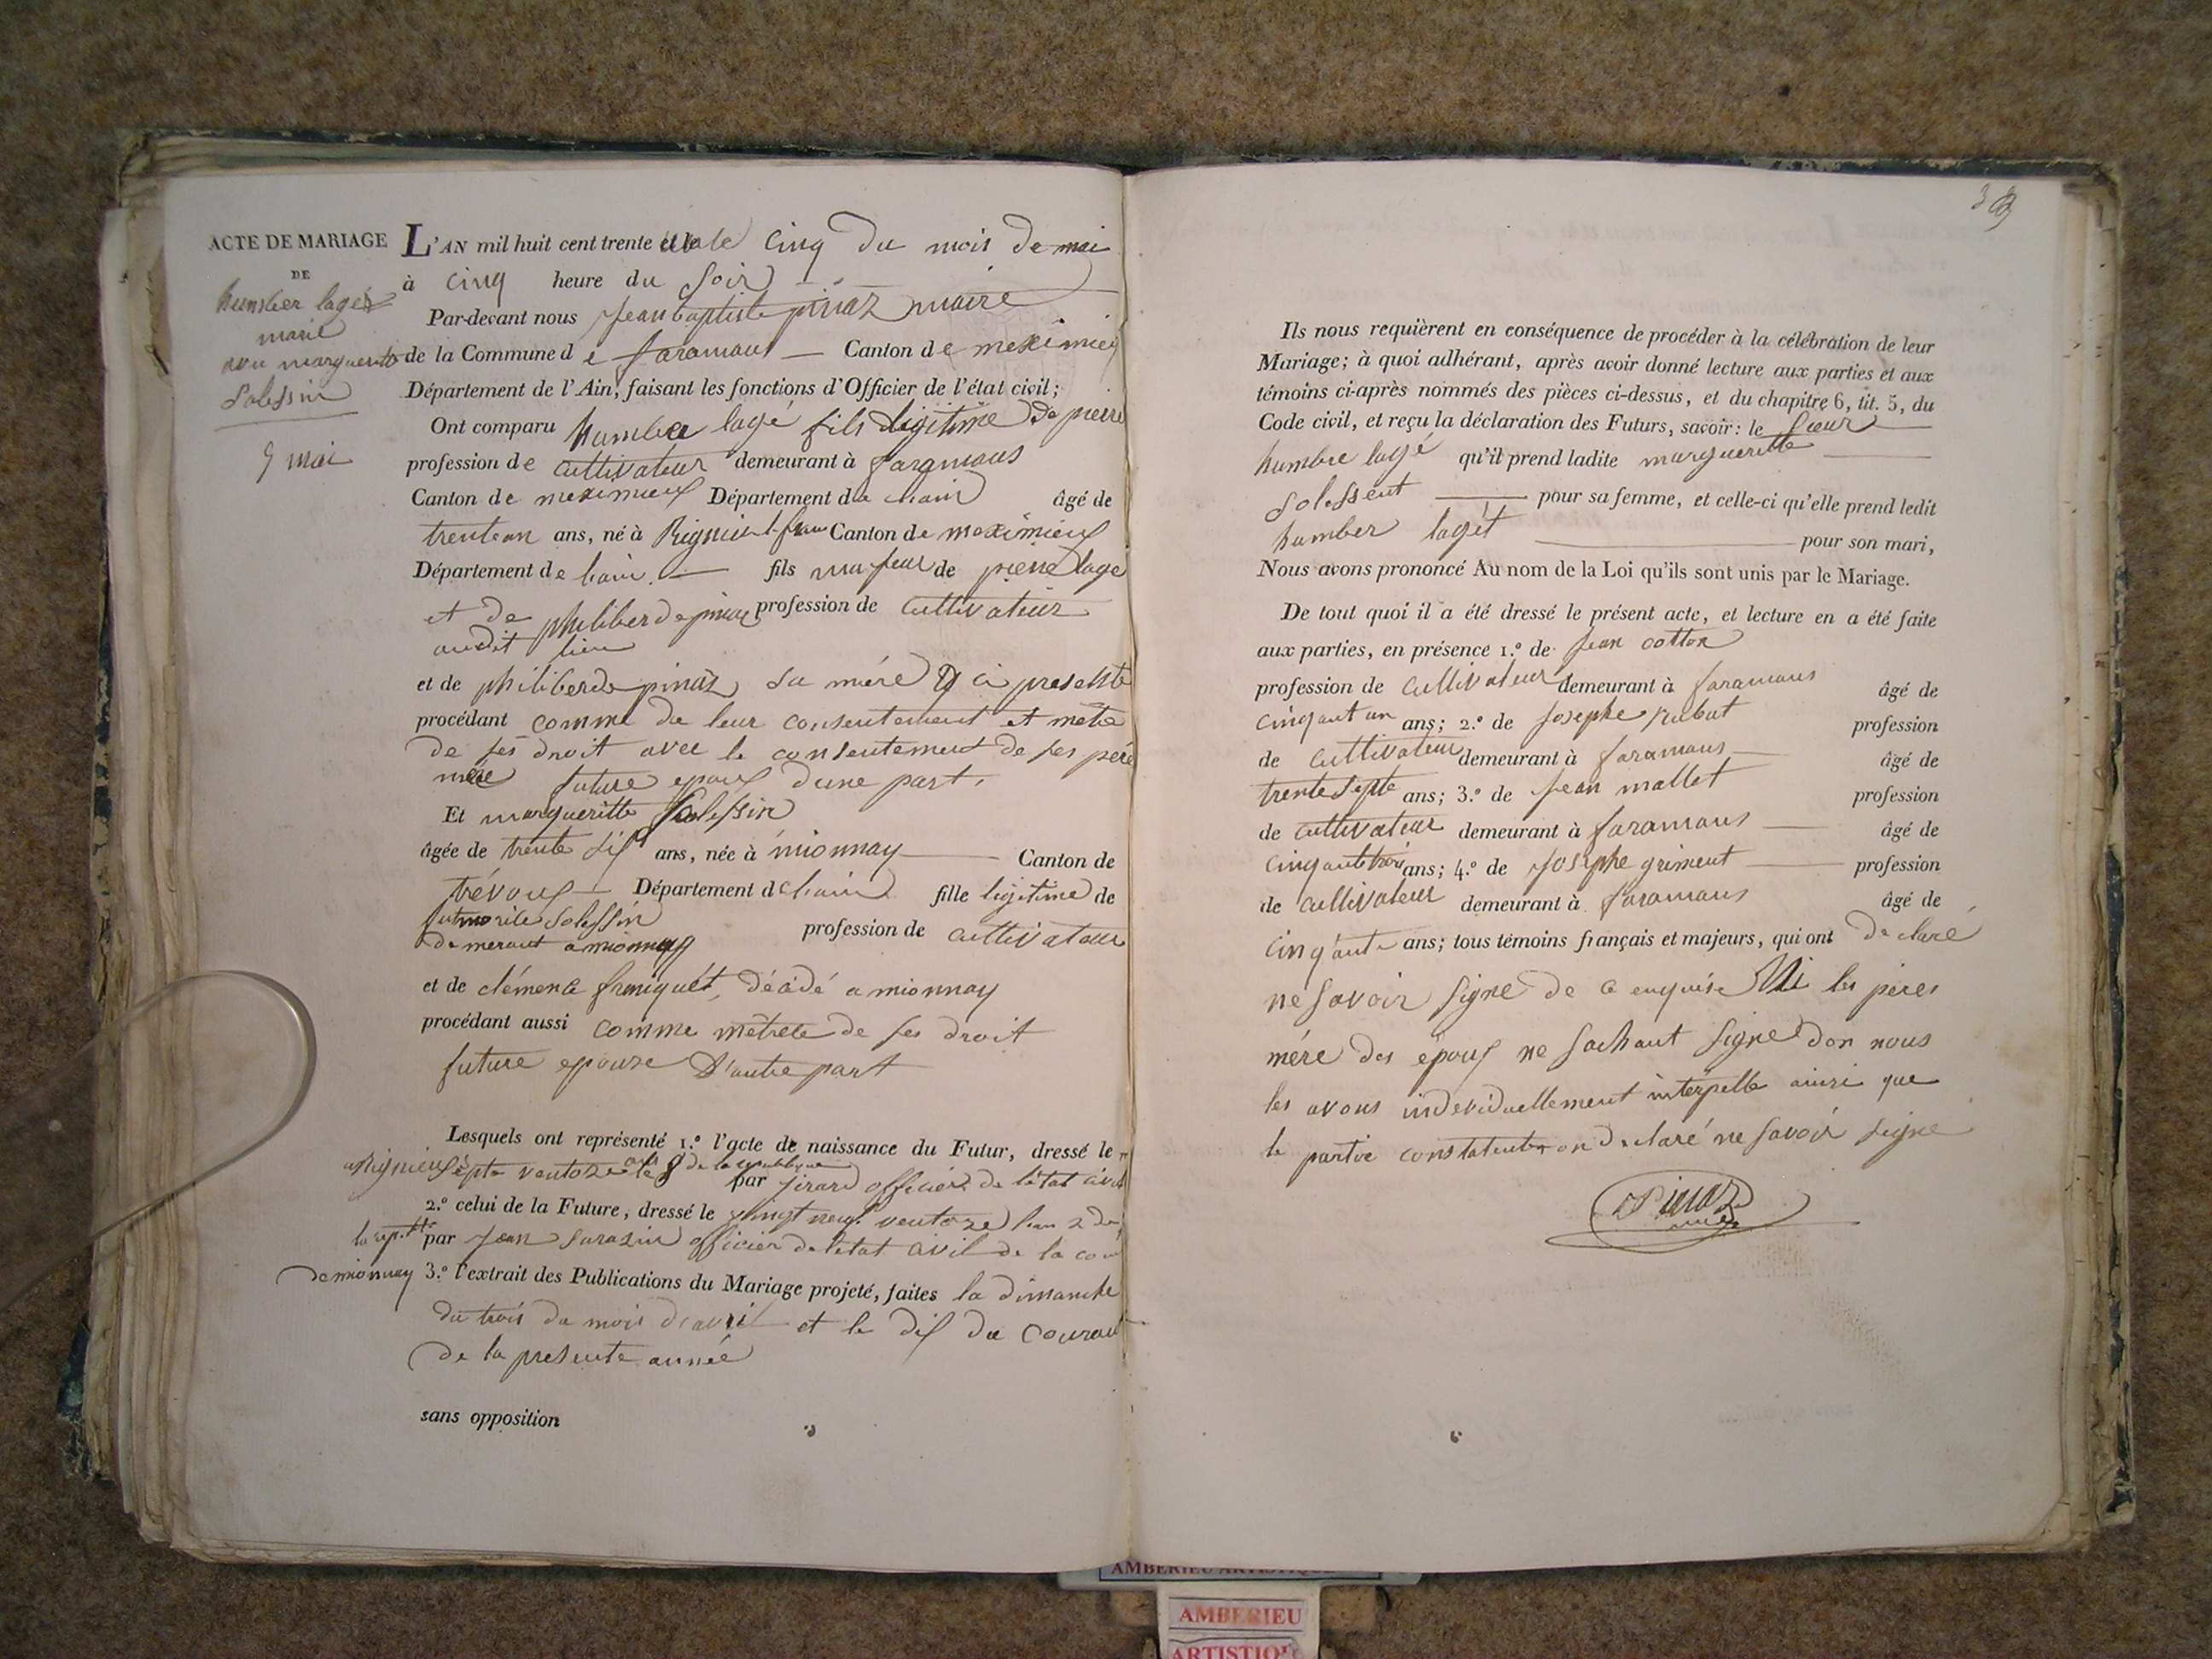 ACTE DE MARIAGE
DE
humber lagét
marié
avec margueritte
Solessin
5 mai
L'AN mil huit cent trente et le cinq du mois de mai
à cinq heure du soir
Par-devant nous jean baptiste pinaz maire
de la Commune de faramans Canton de meximieu
Département de l'Ain, faisant les fonctions d'Officier de l'état civil;
Ont comparu humbee lagé fils légitime de pierre
profession de cultivateur demeurant à faramans
Canton de meximieux Département de lain âgé de
trente an ans, né à Rignieu le franc Canton de meximieux
Département de lain. fils majeur de pierre lagé
et de philiberde pinaz profession de cultivateur
audit lieu
et de philiberde pinaz sa mère y ci presente
procédant comme de leur consentement et mêtre
de ses droit avec le consentement de ses père
mère future epoux d'une part.
Et margueritte Solessin
âgée de trente six ans, née à mionnay Canton de
trévoux Département de lain fille légitime de
solessin
demerant a mionnay profession de cultivateur
et de clémence franiquét, décédé a mionnay
procédant aussi comme mêtrete de ses droit
future epouze d'autre part
Lesquels ont représenté 1.º l'acte de naissance du Futur, dressé le
a Rignieux septe ventoze an 8 de la republique par jirard officier de l'état civil
2.º celui de la Future, dressé le vingt neuf ventoze lan 2 de
la rep.que par jean sarazin officier de letat civil de la com
de mionnay 3.º l'extrait des Publications du Mariage projeté, faites la dimanche
du trois du mois d'avril et le dix du courant
de la presente année
sans opposition
Ils nous requièrent en conséquence de procéder à la célébration de leur
Mariage; à quoi adhérant, après avoir donné lecture aux parties et aux
témoins ci-après nommés des pièces ci-dessus, et du chapitre 6, tit. 5, du
Code civil, et reçu la déclaration des Futurs, savoir: le sieur
humbre lagé qu'il prend ladite margueritte
solessent pour sa femme, et celle-ci qu'elle prend ledit
humber lagét pour son mari,
Nous avons prononcé Au nom de la Loi qu'ils sont unis par le Mariage.
De tout quoi il a été dressé le présent acte, et lecture en a été faite
aux parties, en présence 1.º de jean cotton
profession de cultivateur demeurant à faramans âgé de
cinqant un ans; 2.º de josephe rubat profession
de cultivateur demeurant à faramans âgé de
trente septe ans; 3.º de jean mallet profession
de cultivateur demeurant à faramans âgé de
cinqante trois ans; 4.º de josephe griment profession
de cultivateur demeurant à faramans âgé de
cinq'ante ans; tous témoins français et majeurs, qui ont declaré
ne savoir signé de ce enquise Ni les pères
mére des époux ne sachant signé don nous
les avons individuellement interpellé ainsi que
le partie on declaré ne savoir signé
Pinaz
maire
AMBERIEU ARTISTIQUE
AMBERIEU
ARTISTIQUE